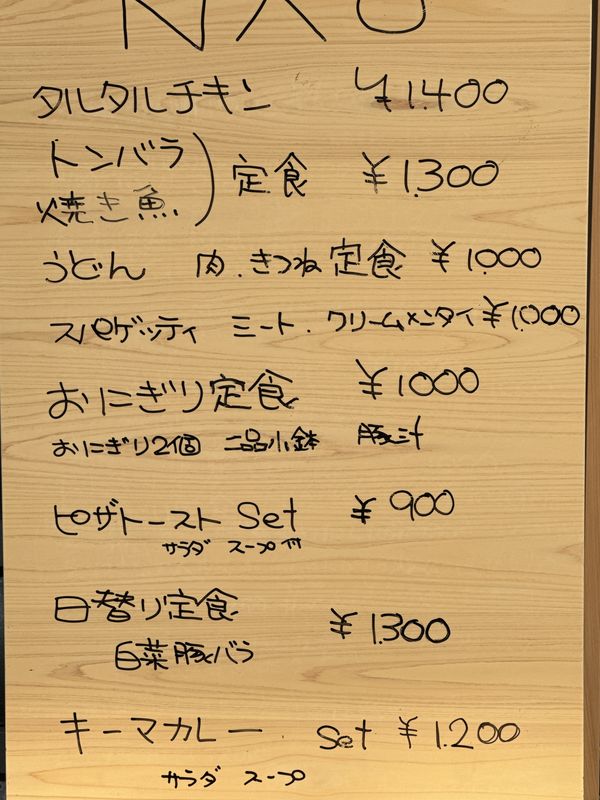 タルタルチキン ¥1.400
トンバラ
焼き魚) 定食 ¥1.300
うどん 肉.きつね定食 ¥1.000
スパゲッティ ミート.クリームメンタイ¥1.000
おにぎり定食 ¥1000
おにぎり2個 二品小鉢 豚汁
ピザトースト Set ¥900
サラダ スープ付
日替り定食 ¥1300
白菜豚バラ
キーマカレー Set ¥1.200
サラダ スープ